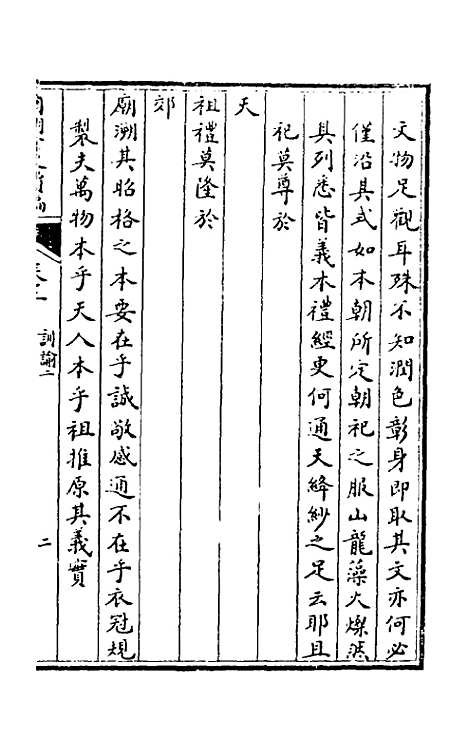 文物足觀耳殊不知潤色彰身即取其文亦何必
僅沿其式如本朝所定朝祀之服山龍藻火燦然
具列悉皆義本禮經更何通天絳紗之足云耶且
祀莫尊於
天
祖禮莫隆於
郊
廟溯其昭格之本要在乎誠敬感通不在乎衣冠規
製夫萬物本乎天人本乎祖推原其義實
訓諭二
二